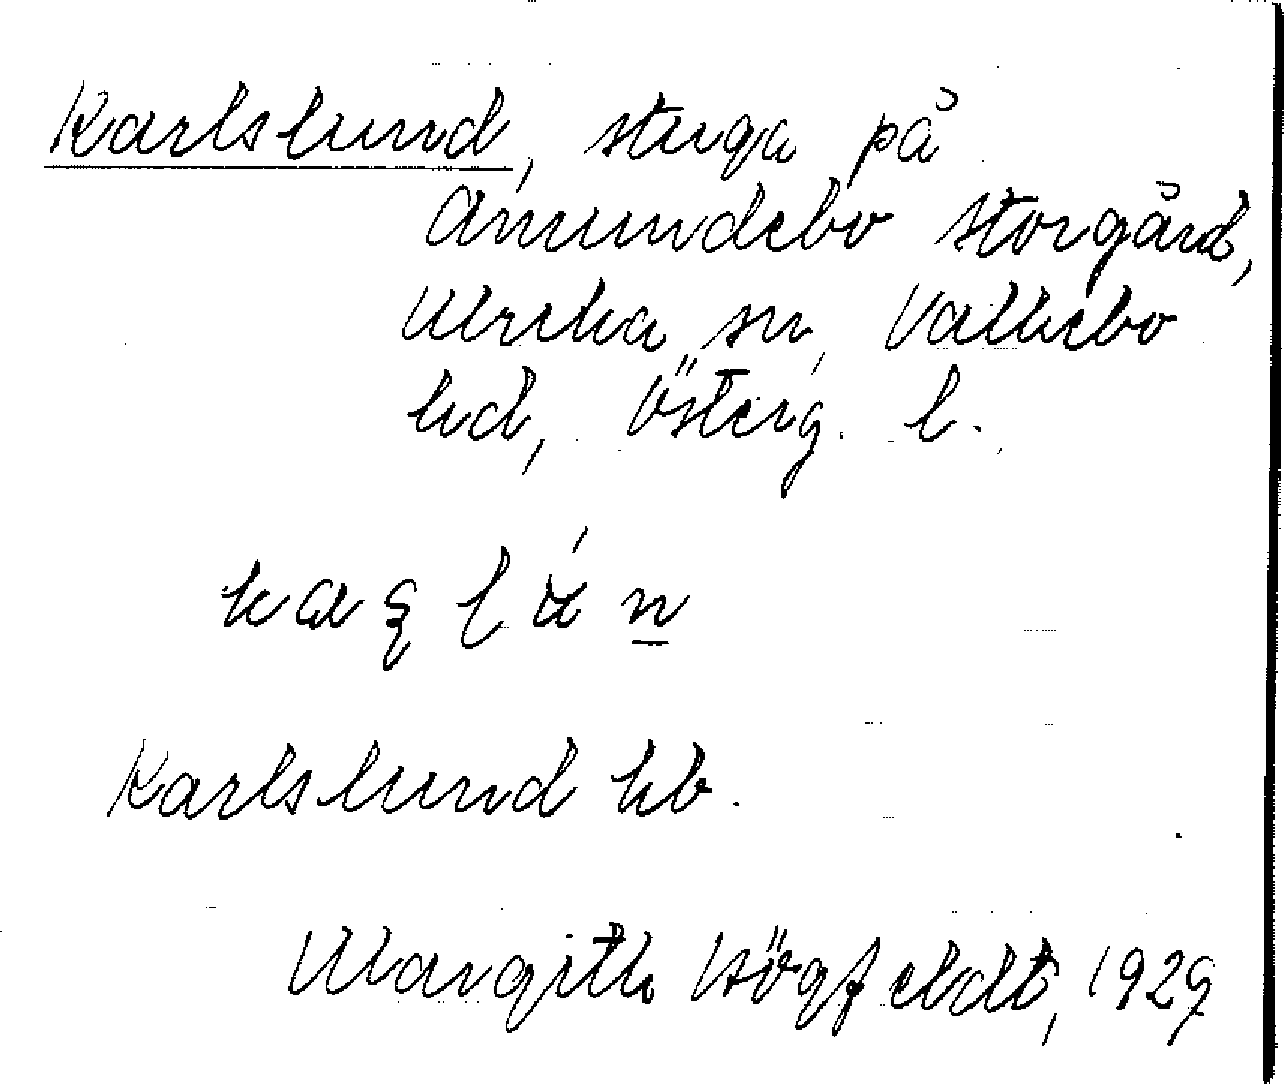 Karlslund, stuga på
Amundebo storgård,
Ulrika sn, Vallebo
hd, Österg. l.
Karlslund kb.
Margith Högfeldt, 1929